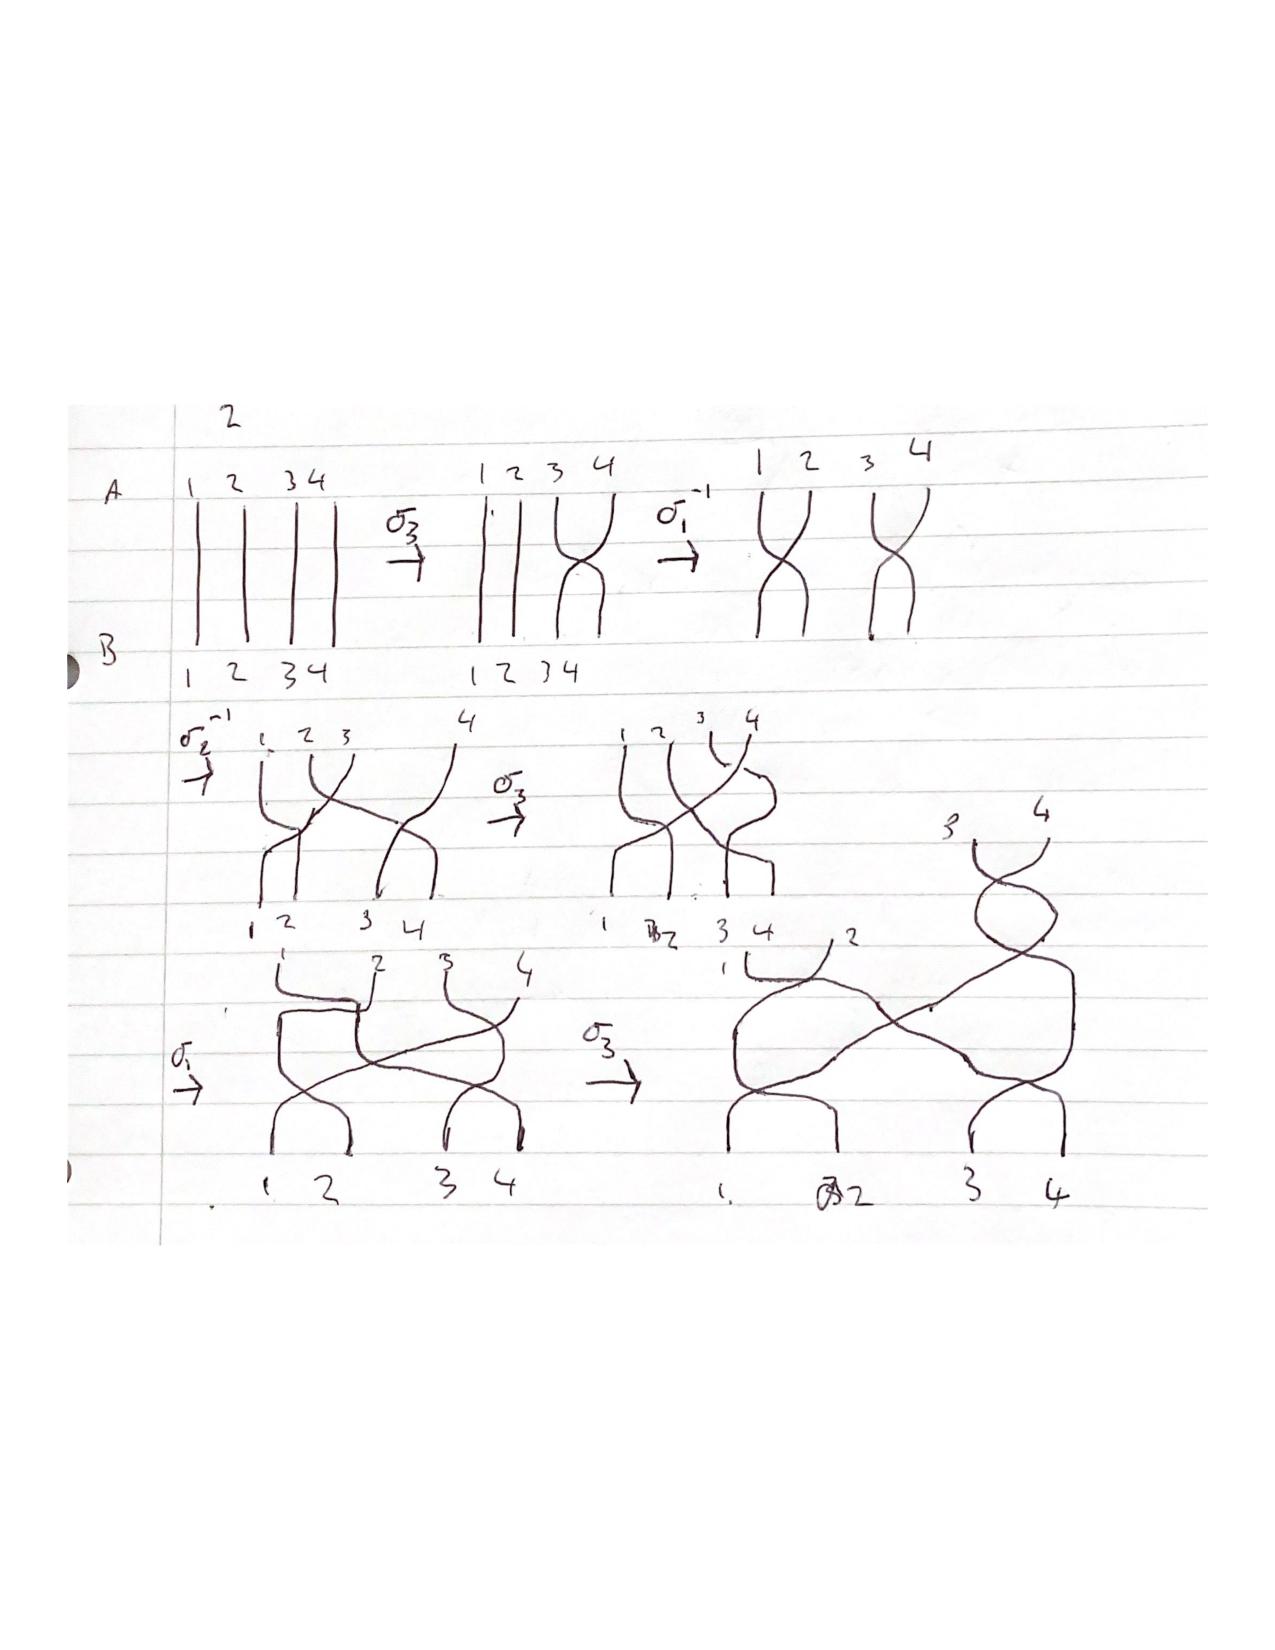 2
A 1 2 3 4 σ₃ → 1 2 3 4 σ₁⁻¹ → 1 2 3 4
B
1 2 3 4 1 2 3 4
σ₂⁻¹ → 1 2 3 4 σ₃ → 1 2 3 4
1 2 3 4 1 2 3 4
σ₁ → 1 2 3 4 σ₃ → 1 2 3 4
1 2 3 4 1 2 3 4